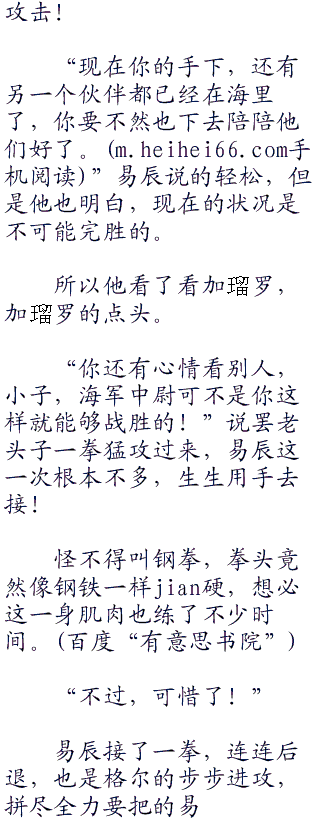 攻击！
“现在你的手下，还有
另一个伙伴都已经在海里
了，你要不然也下去陪陪他
们好了。(m.heihei66.com手
机阅读)”易辰说的轻松，但
是他也明白，现在的状况是
不可能完胜的。
所以他看了看加瑠罗，
加瑠罗的点头。
“你还有心情看别人，
小子，海军中尉可不是你这
样就能够战胜的！”说罢老
头子一拳猛攻过来，易辰这
一次根本不多，生生用手去
接！
怪不得叫钢拳，拳头竟
然像钢铁一样jian硬，想必
这一身肌肉也练了不少时
间。(百度“有意思书院”)
“不过，可惜了！”
易辰接了一拳，连连后
退，也是格尔的步步进攻，
拼尽全力要把的易